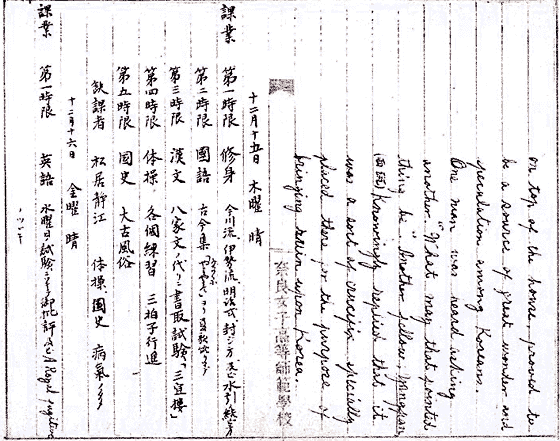 on top of the house, proved to
be a source of great wonder and
speculation among Koreans.
One man was heard asking
another "What may that pointed
thing be" Another fellow,
Knowingly replied that it
was a sort of specially
placed there for the purpose of
bringing ruin upon Korea.
奈良女子高等師範學校
十二月十五日 木曜 晴
課業 第一時限 修身 今川流、伊勢流、明治式、封ジ方 及ビ 水引結ビ方
第二時限 國語 古今集
第三時限 漢文 八家文ノ代リニ書取試驗「三宜樓」
第四時限 体操 各個練習 三拍子行進
第五時限 國史 太古風俗
欽課者 私居静江 体操國史 病氣
十二月十六日 金曜 晴
課業 第一時限 英語 水曜日ノ試驗 御批評 A Royal fugitive